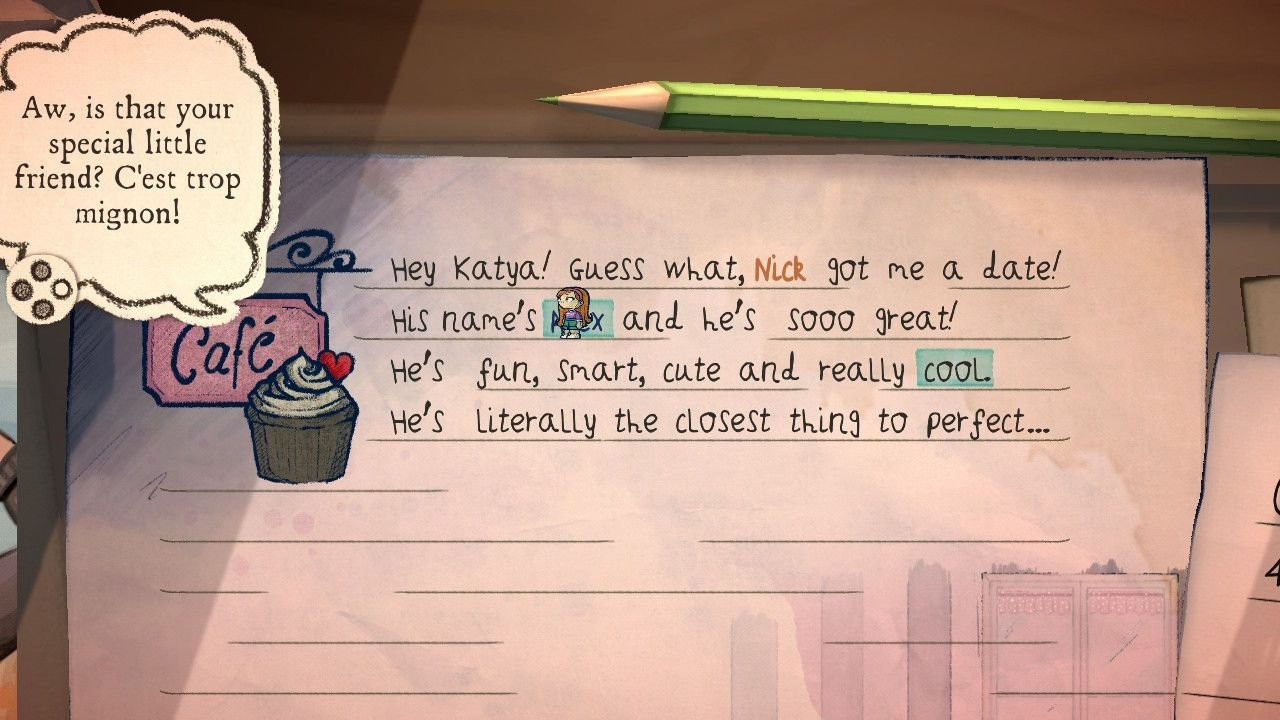 Aw, is that your
special little
friend? C'est trop
mignon!
Café
Hey Katya! Guess what, Nick got me a date!
His name's and he's sooo great!
He's fun, smart, cute and really cool.
He's literally the closest thing to perfect...